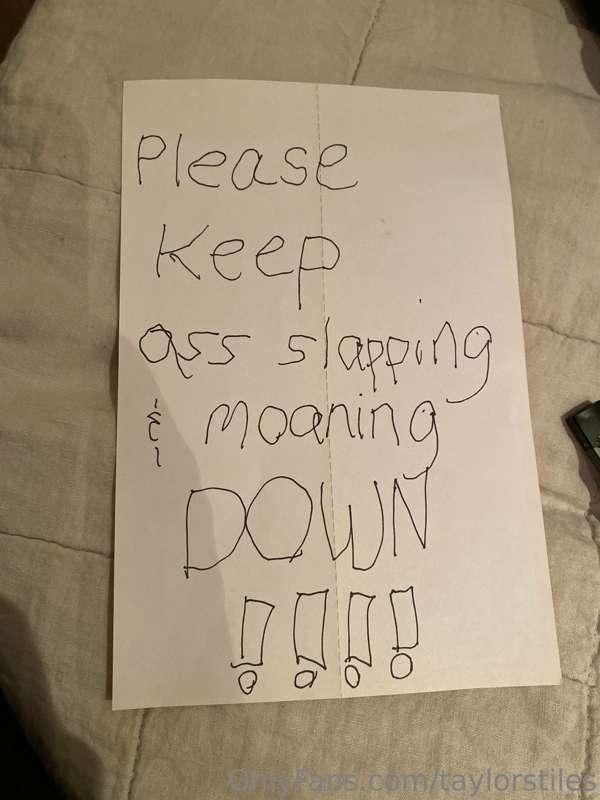 Please
Keep
ass slapping
& moaning
DOWN
!!!!
OnlyFans.com/taylorstiles